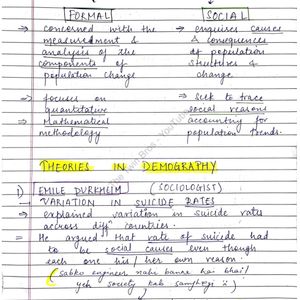 FORMAL SOCIAL
→ concerned with the → enquires causes
measurement & & consequences
analysis of the of population
components of structures &
population change change
→ focuses on → seek to trace
quantitative social reasons
→ Mathematical accounting for
methodology population trends.
THEORIES IN DEMOGRAPHY
1) EMILE DURKHEIM (SOCIOLOGIST)
→ VARIATION IN SUICIDE RATES
→ explained variation in suicide rates
across diffⁿ countries.
→ He argued that rate of suicide had
to be social causes even though
each one his/her own reason.
(sabko engineer nahi banna hai bhai/
yeh society kab samjhegi